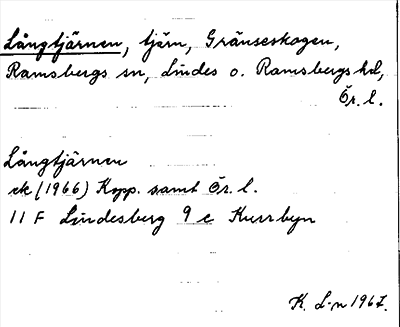 Långtjärnen, tjärn, Gränsskogen,
Ramsbergs sn, Lindes o. Ramsbergs hd,
Ör. l.
Långtjärnen
ek (1966) Kopp. samt Ör. l.
11 F Lindesberg 9 c Kurrbyn
K. L-n 1967.